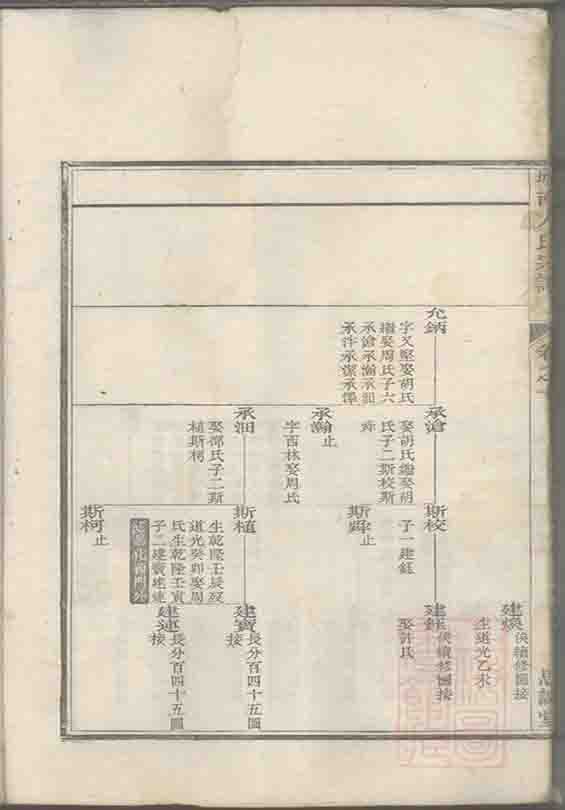 允鈵
字又堅娶胡氏
繼娶周氏子六
承滄承瀚承沺
承汻承潔承澤
承滄
娶胡氏繼娶胡
氏子二斯校斯
承瀚止
字百林娶周氏
承沺
娶鄒氏子二斯
植斯柯
斯校
子一建鈺
止
斯植
生乾隆壬辰歿
道光癸卯娶周
氏生乾隆壬寅
子二建寶建連
斯柯止
俟續修圖接
生道光乙未
俟續修圖接
娶許氏
建寶長分百四十五圖
接
建連長分百四十五圖
接